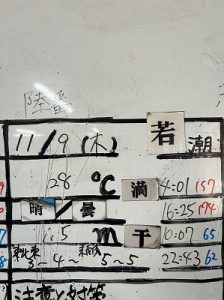 陸番
11/9(木) 若潮
28 ℃ 満 4:01 157
晴/曇 16:25 174
1.5 m 干 10:07 65
3~4 5~5 22:43 62
注意と対策